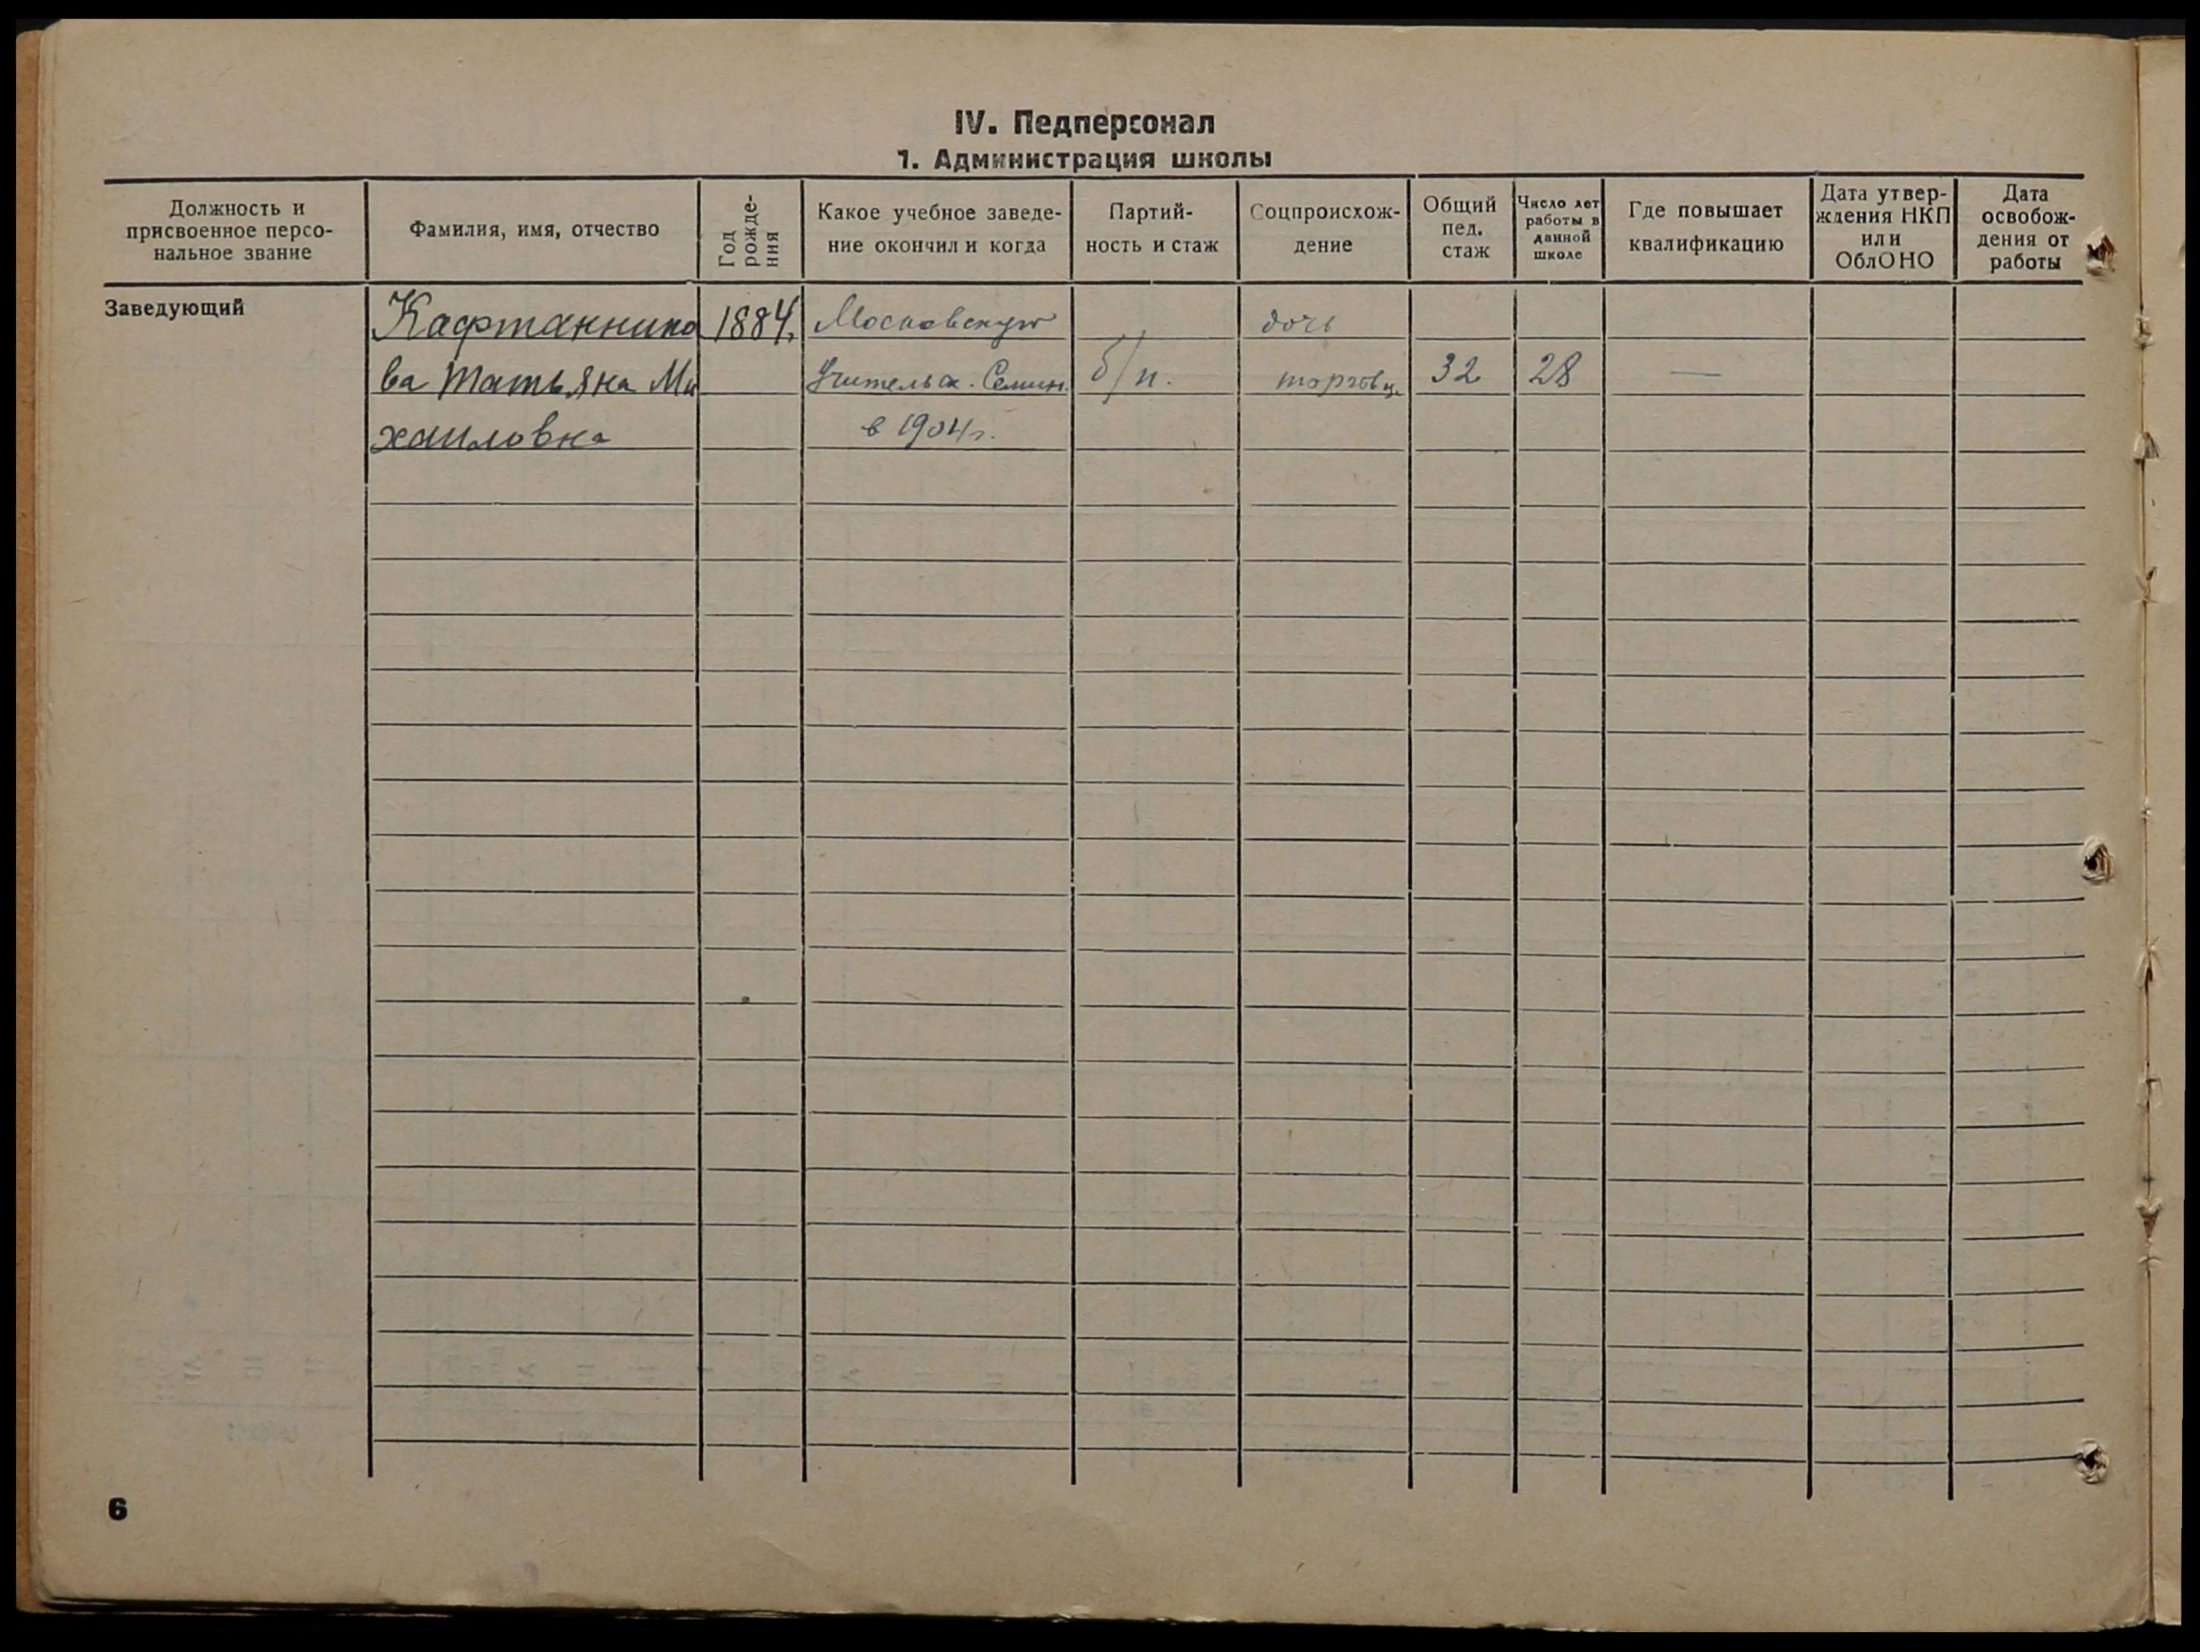 IV. Педперсонал
1. Администрация школы
Должность и
присвоенное персо-
нальное звание
Фамилия, имя, отчество
Год
рожде-
ния
Какое учебное заведе-
ние окончил и когда
Партий-
ность и стаж
Соцпроисхож-
дение
Общий
пед.
стаж
Число лет
работы в
данной
школе
Где повышает
квалификацию
Дата утвер-
ждения НКП
или
ОблОНО
Дата
освобож-
дения от
работы
Заведующий
Кафтанникo 1884. Московскую дочь
ва Татьяна Ми Учительск. Семин. б/п. торговц. 32 28 —
хаиловна в 1904г.
6